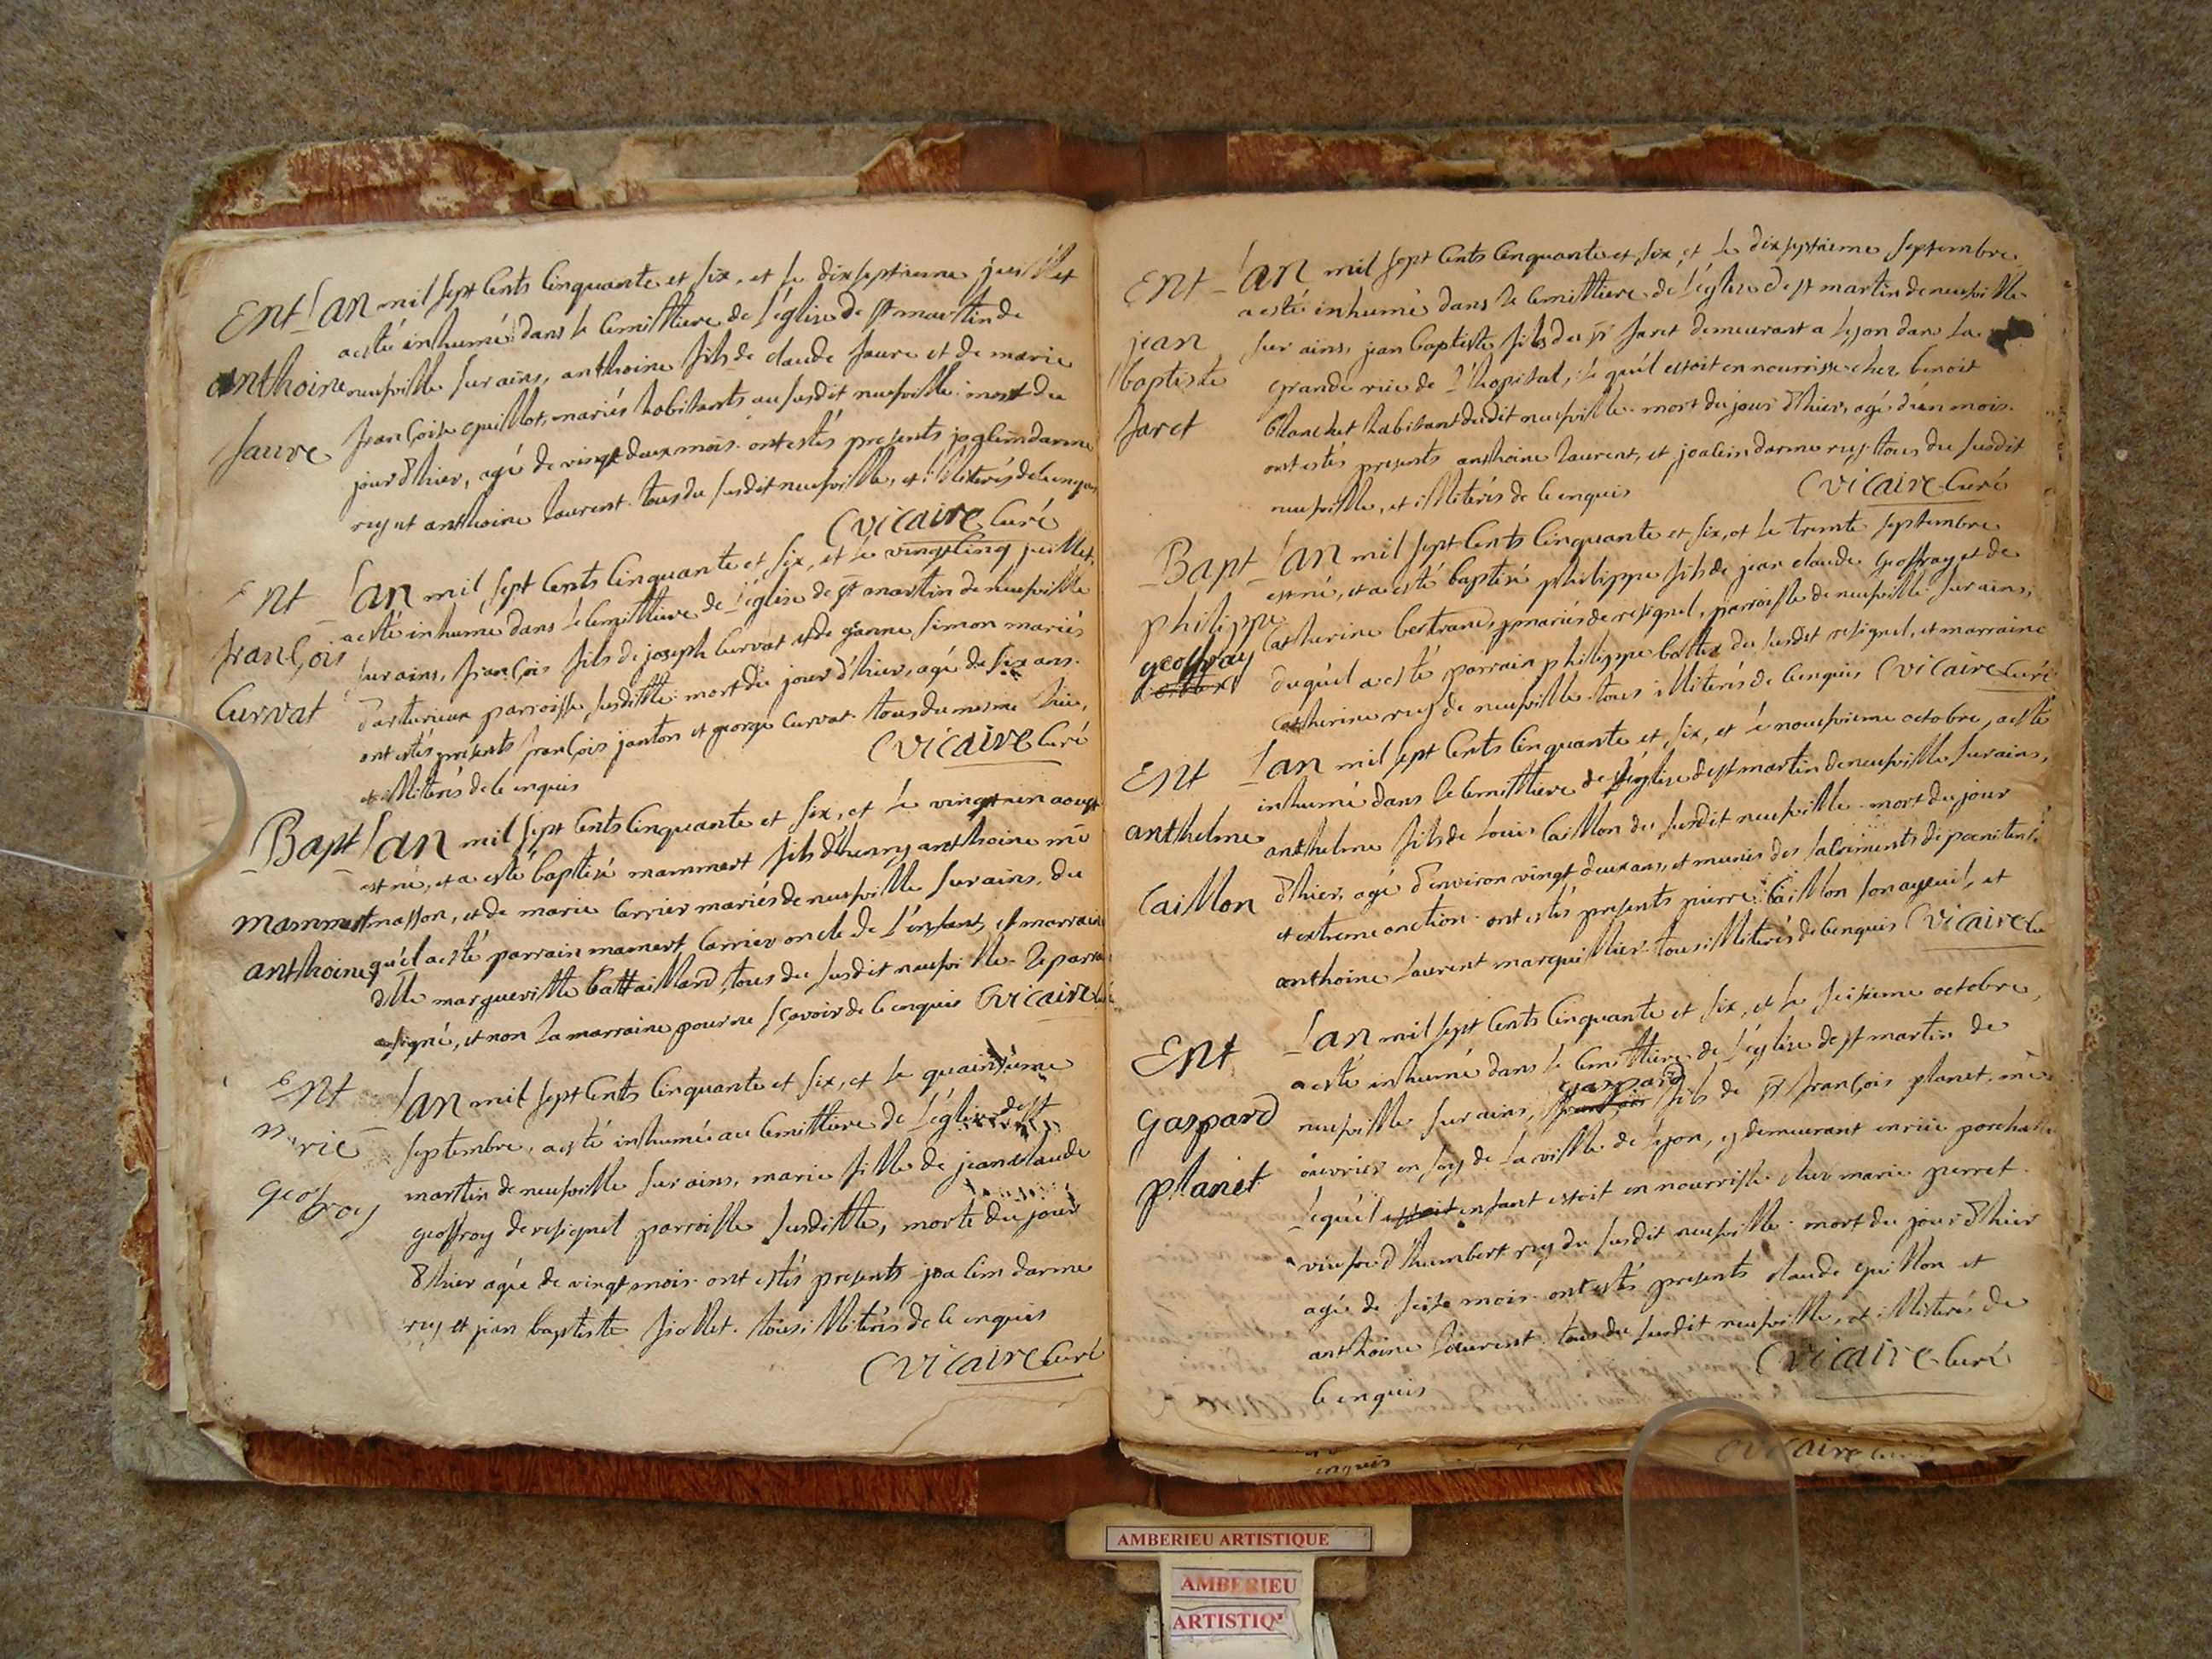 Ent L'an mil sept cents cinquante et six, et le dixseptieme juillet
a esté inhumé dans le cemittiere de l'église de st martin de
anthoine neufville sur ains, anthoine fils de claude faure et de marie
faure françoise quillot, mariés habitants au susdit neufville. mort du
jour d'hier, agé de vingt deux mois. ont estés presents joalin darme
rey et anthoine laurent. tous du susdit neufville, et illiterés de ce enquis
C vicaire curé
Ent L'an mil sept cents cinquante et six, et le vingt cinq juillet,
a esté inhumé dans le cemittiere de l'église de st martin de neufville
françois sur ains, françois fils de joseph curvat et de janne simon mariés
curvat d'arturieux parroisse susditte. mort du jour d'hier, agé de six ans.
ont estés présents françois janton et george curvat. tous du mesme lieu,
et illiterés de ce enquis C vicaire curé
Bapt L'an mil sept cents cinquante et six, et le vingt un aoust
est né, et a esté baptisé mammert fils d'henry anthoine me
mammert masson, et de marie carrier mariés de neufville sur ains, du
anthoine quel a esté parrain mamert carrier oncle de l'enfant, et marraine
dlle margueritte battaillard, tous du susdit neufville. le parrain
a signé, et non la marraine pour ne sçavoir de ce enquis C vicaire curé
Ent L'an mil sept cents cinquante et six, et le quainsieme
marie septembre, a esté inhumée au cemittiere de l'église de st
martin de neufville sur ains, marie fille de jean claude
geofroy geoffroy de resignel parroisse susditte, morte du jour
d'hier agée de vingt mois. ont estés presents joalin darme
rey et jean baptiste fiollet. tous illiterés de ce enquis
C vicaire curé
Ent L'an mil sept cents cinquante et six, et le dixseptieme septembre
a esté inhumé dans le cemittiere de l'église de st martin de neufville
jean sur ains, jean baptiste fils du sr faret demeurant a lyon dans la
baptiste grande rue de l'hopital, lequel estoit en nourrisse chez benoit
faret blanchet habitant dudit neufville. mort du jour d'hier, agé d'un mois.
ont estés presents anthoine laurent, et joalin darme rey. tous du susdit
neufville, et illiterés de ce enquis C vicaire curé
Bapt L'an mil sept cents cinquante et six, et le trente septembre
est né, et a esté baptisé philippe fils de jean claude geoffray et de
philippe catherine bertrand, mariés de resignel, parroisse de neufville sur ains,
geoffray duquel a esté parrain philippe battex du susdit resignel, et marraine
catherine rey de neufville. tous illiterés de ce enquis C vicaire curé
Ent L'an mil sept cents cinquante et six, et le neufvieme octobre, a esté
inhumé dans le cemittiere de l'église de st martin de neufville sur ains,
anthelme anthelme fils de louis caillon du susdit neufville. mort du jour
caillon d'hier, agé d'environ vingt deux ans, et munis des sacrements de pœnitence
et extreme onction. ont estés presents pierre caillon son ayeuil, et
anthoine laurent marguillier. tous illiterés de ce enquis C vicaire cu
Ent L'an mil sept cents cinquante et six, et le seisieme octobre,
a esté inhumé dans le cemittiere de l'église de st martin de
gaspard
gaspard neufville sur ains, françois fils de sr françois planet, me
planet ouvrier en soy de la ville de lyon, y demeurant en rue
lequel estoit enfant estoit en nourrisse chez marie perret
veufve d'humbert rey du susdit neufville. mort du jour d'hier
agé de seise mois. ont estés presents claude quillon et
anthoine laurent. tous du susdit neufville, et illiterés de
ce enquis C vicaire curé
enquis C vicaire curé
AMBERIEU ARTISTIQUE
AMBERIEU
ARTISTIQ